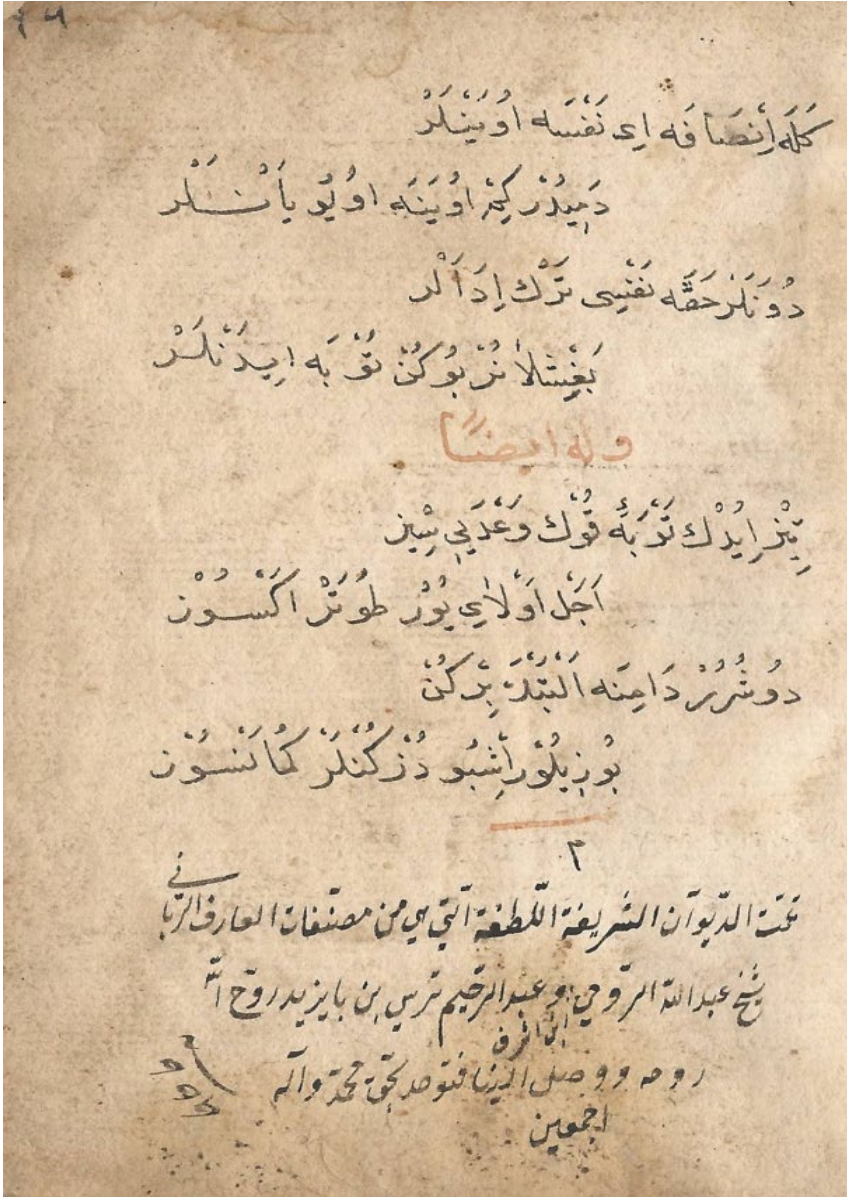 كَلَه اِنْصَافَه اِى نَفْسَه اُويَنْلَرْ
دَمِيدُرْ كِيمْ اُويَنَه اُويُو يَاتَنْلَرْ
دُونَنْلَرْ حَقَّه نَفْسِى تَرْكْ اِدَنْلَرْ
بَغِشْلَانُرْ بُوكُنْ تَوْبَه اِيدَنْلَرْ
وله ايضًا
تِيزْ اِيدُكْ تَوْبَه قُوڭْ وَعْدَيِى سِيزْ
اَجَل اَوْلَايِى يُورُ طُوتَرْ اَكْسُوزْ
دُوشُرُرْ دَامِنَه اَلْبَتَّه بِرْكُنْ
بُوزِيلُورْ اِشْبُو دُزْكُنْلَرْ كُمَانْسُوزْ
م
تمّت الدّيوان الشّريفة اللّطيفة الّتي هي من مصنّفات العارف الرّبّاني
شيخ عبد اللّه الرّومي ابن اشرف و عبد الرّحيم ترسي بن بايزيد روّح اللّه
روحه ووصل الينا فتوحه بحقّ محمّد وآله
اجمعين
سنه ٩٩٩